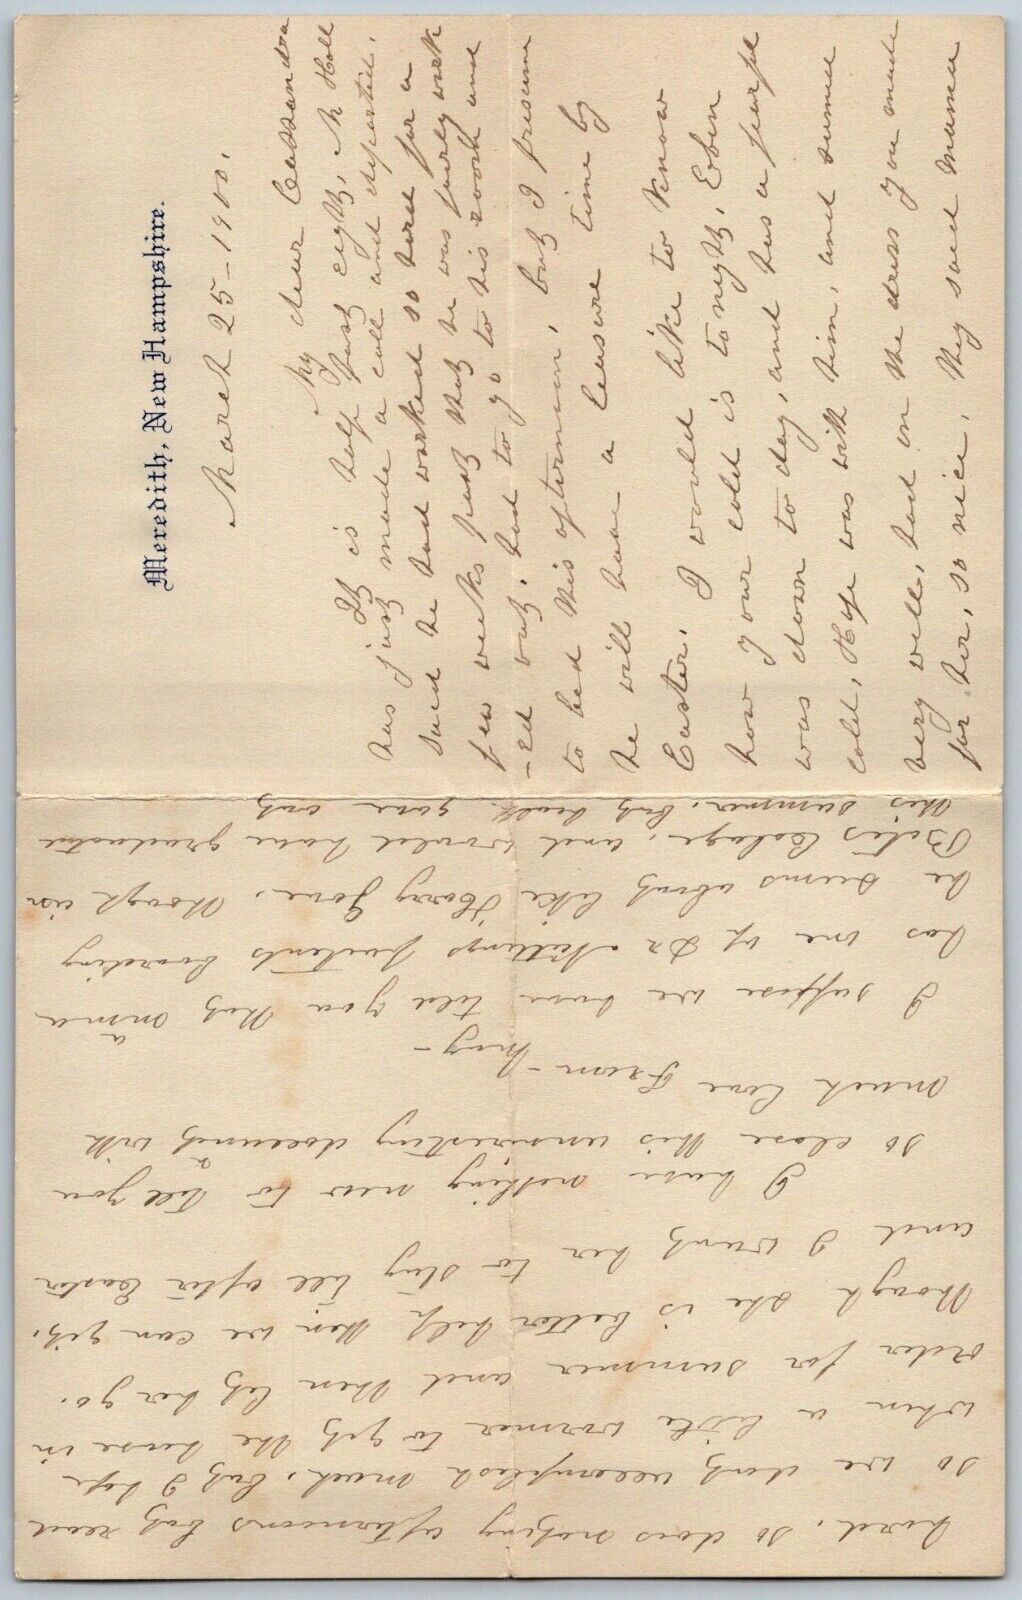 Meredith, New Hampshire.
March 25 - 1900.
My dear Cassandra
It is half past eight, Mr Hall
has just made a call and departed.
Said he had worked so hard for a
few weeks past that he was fairly work
-ed out, had to go to his room and
to bed this afternoon, but I presume
he will have a leasure time by
Easter. I would like to know
how your cold is to night, Eben
was down to day, and has a fearful
cold, Hope was with him, and summer
very well, had on the dress you made
for her, so nice, they said mama
hard, so does nothing afternoons but read
so we dont accomplish much, but I hope
when a little warmer to get the house in
order for summer and then let her go.
though she is better help then we can get,
and I want her to stay till after Easter
I have nothing new to tell you
so close this uninteresting document with
a
much love From - May -
I suppose we have told you that
a
has one of Dr patients boarding
he seems about like Harry Gove, though in
Bates Colage, and would have graduated
this summer, but health gave out